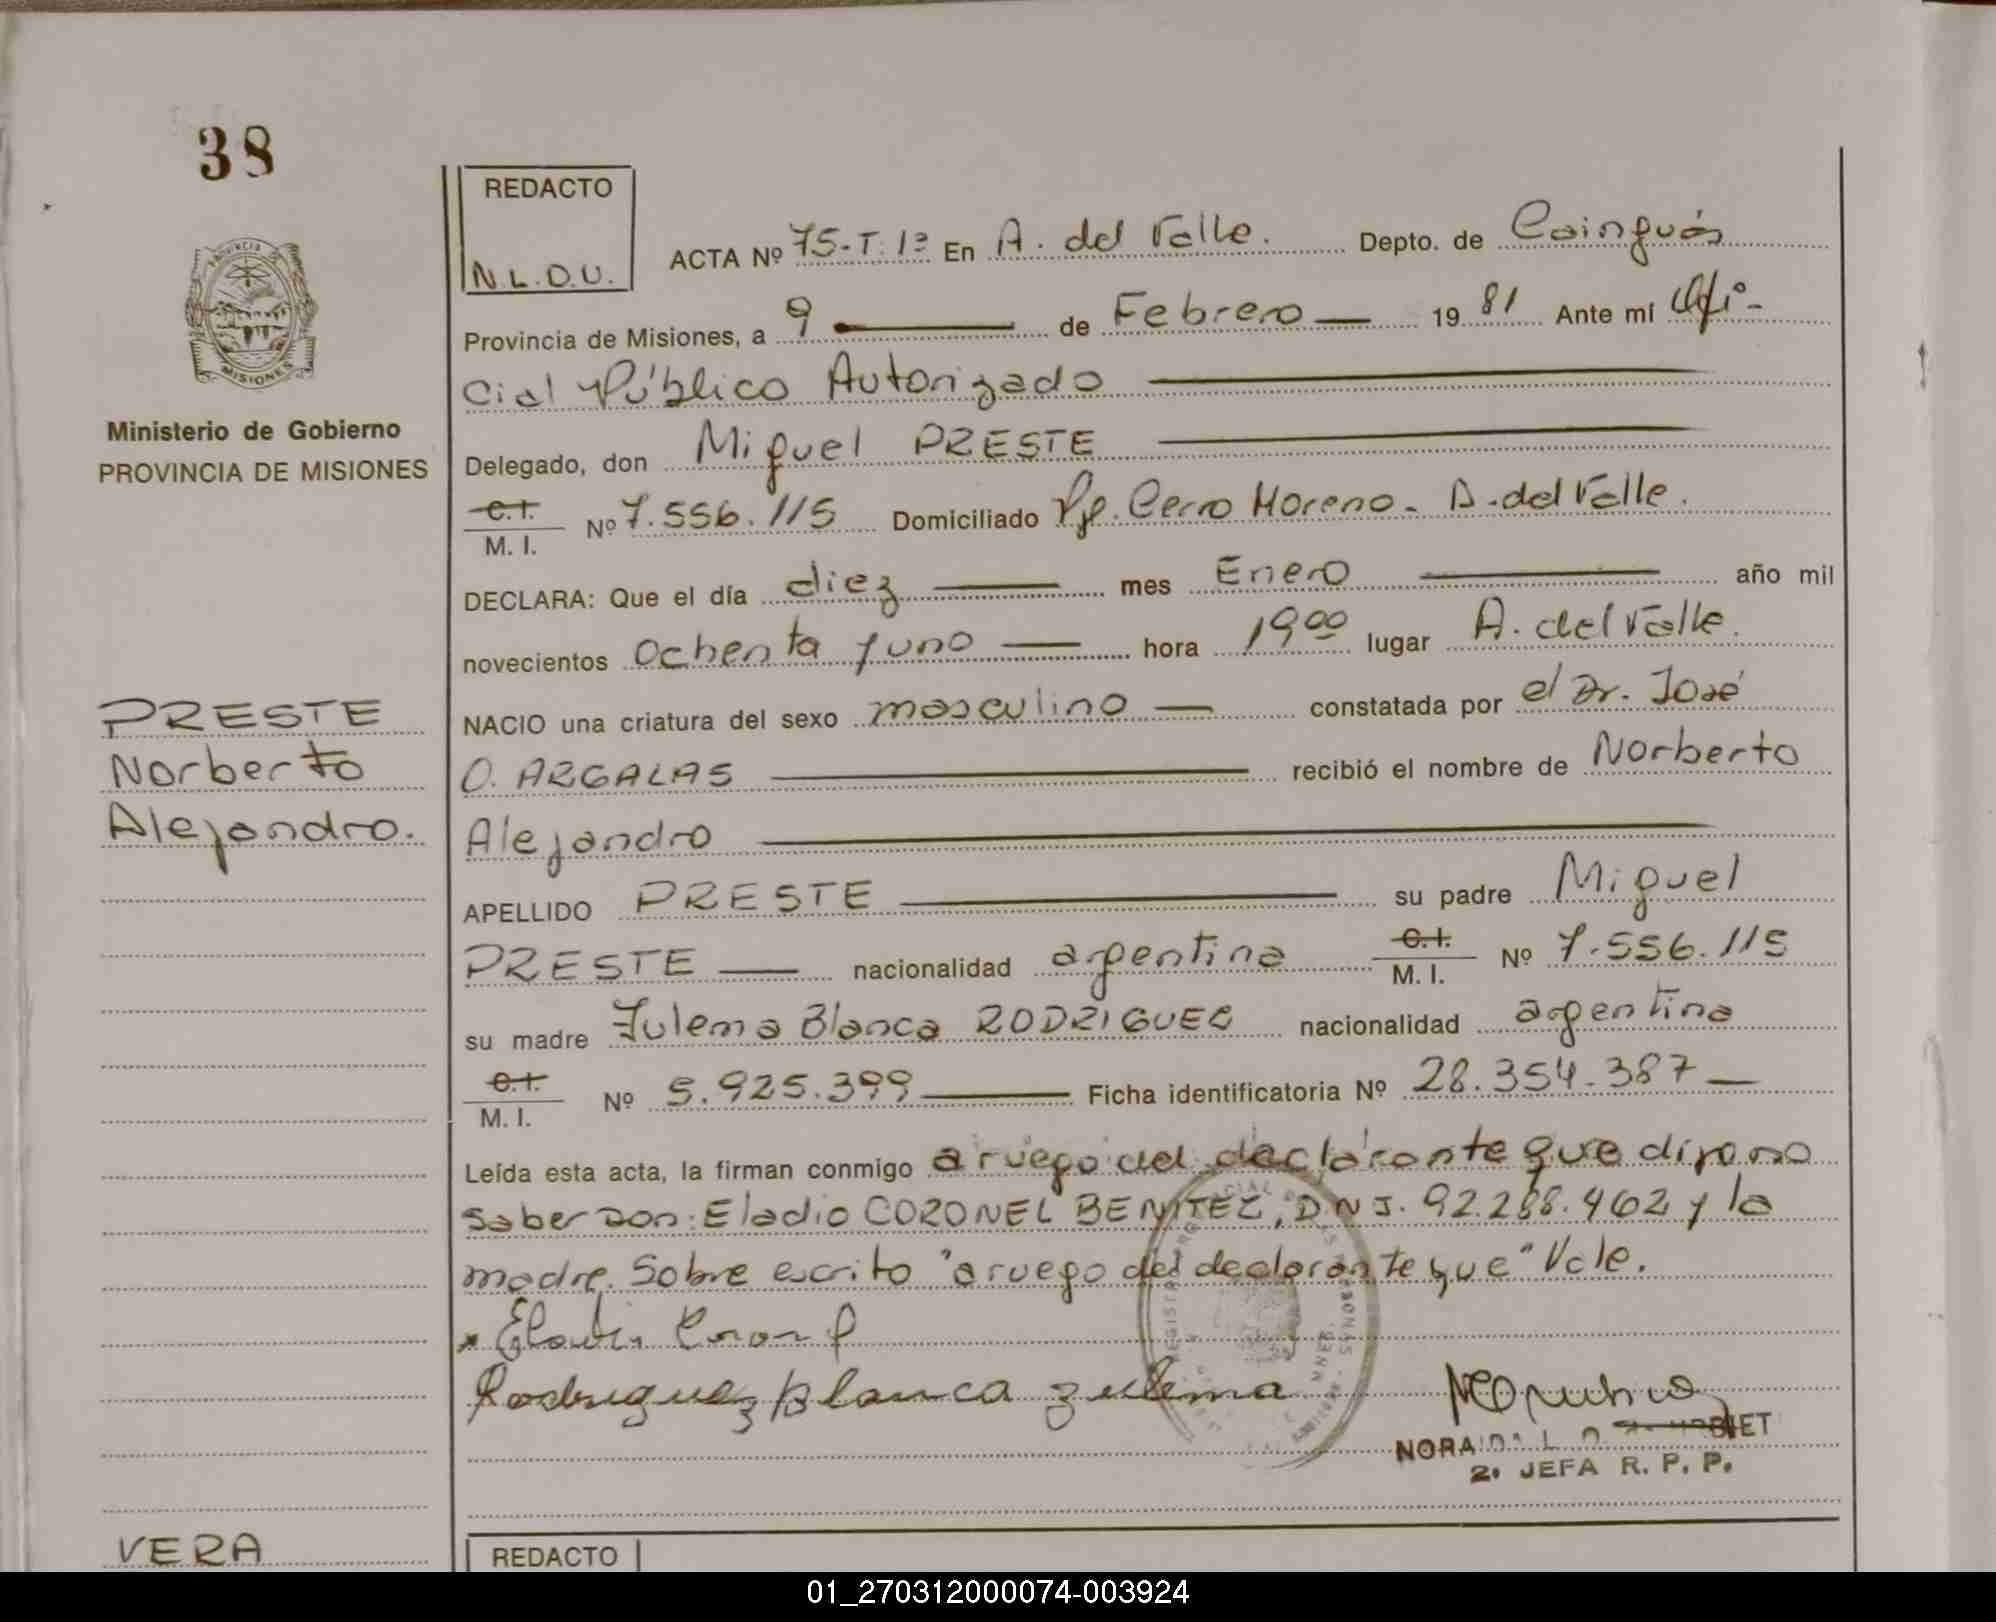 38
PROVINCIA
MISIONES
Ministerio de Gobierno
PROVINCIA DE MISIONES
PRESTE
Norberto
Alejandro.
VERA
REDACTO
N.L.D.U.
ACTA Nº 75-T. 1º En A. del Valle. Depto. de Cainguás
Provincia de Misiones, a 9 de Febrero 19 81 Ante mí Ofi-
cial Público Autorizado
Delegado, don Miguel PRESTE
C.I. M. I. Nº 7.556.115 Domiciliado Pje. Cerro Moreno - A. del Valle.
DECLARA: Que el día diez mes Enero año mil
novecientos ochenta y uno hora 19 00 lugar A. del Valle.
NACIO una criatura del sexo masculino constatada por el Dr. José
O. ARGALAS recibió el nombre de Norberto
Alejandro
APELLIDO PRESTE su padre Miguel
PRESTE nacionalidad argentina C.I. M. I. Nº 7.556.115
su madre Zulema Blanca RODRIGUEZ nacionalidad argentina
C.I. M. I. Nº 5.925.399 Ficha identificatoria Nº 28.354.387
Leída esta acta, la firman conmigo a ruego del declarante que dijo no
saber Don: Eladio CORONEL BENITEZ, D N I. 92.288.462 y la
madre. Sobre escrito "a ruego del declarante que" Vale.
Rodriguez Blanca zulema
NORA
2. JEFA R. P. P.
REDACTO
01_270312000074-003924